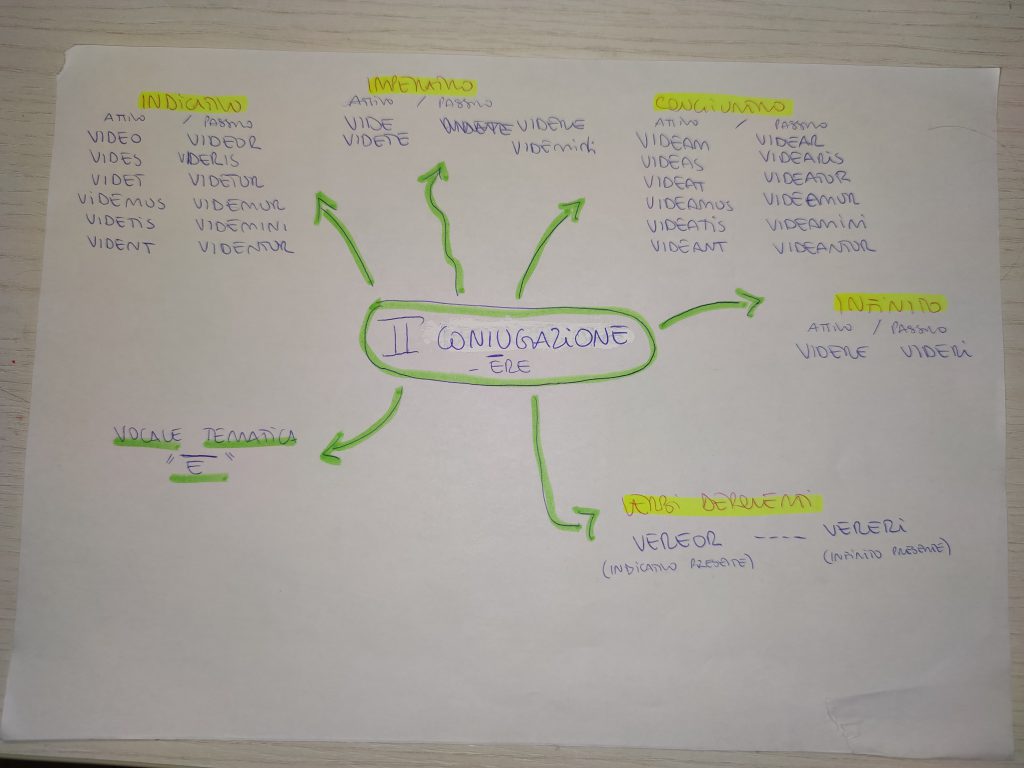 INDICATIVO
ATTIVO / PASSIVO
VIDEO VIDEOR
VIDES VIDERIS
VIDET VIDETUR
VIDEMUS VIDEMUR
VIDETIS VIDEMINI
VIDENT VIDENTUR
IMPERATIVO
ATTIVO / PASSIVO
VIDE VIDERE
VIDETE VIDEMINI
CONGIUNTIVO
ATTIVO / PASSIVO
VIDEAM VIDEAR
VIDEAS VIDEARIS
VIDEAT VIDEATUR
VIDEAMUS VIDEAMUR
VIDEATIS VIDEAMINI
VIDEANT VIDEANTUR
II CONIUGAZIONE
- ĒRE
INFINITO
ATTIVO / PASSIVO
VIDERE VIDERI
VOCALE TEMATICA
"Ē"
VERBI DEPONENTI
VEREOR ---- VERERI
(INDICATIVO PRESENTE) (INFINITO PRESENTE)